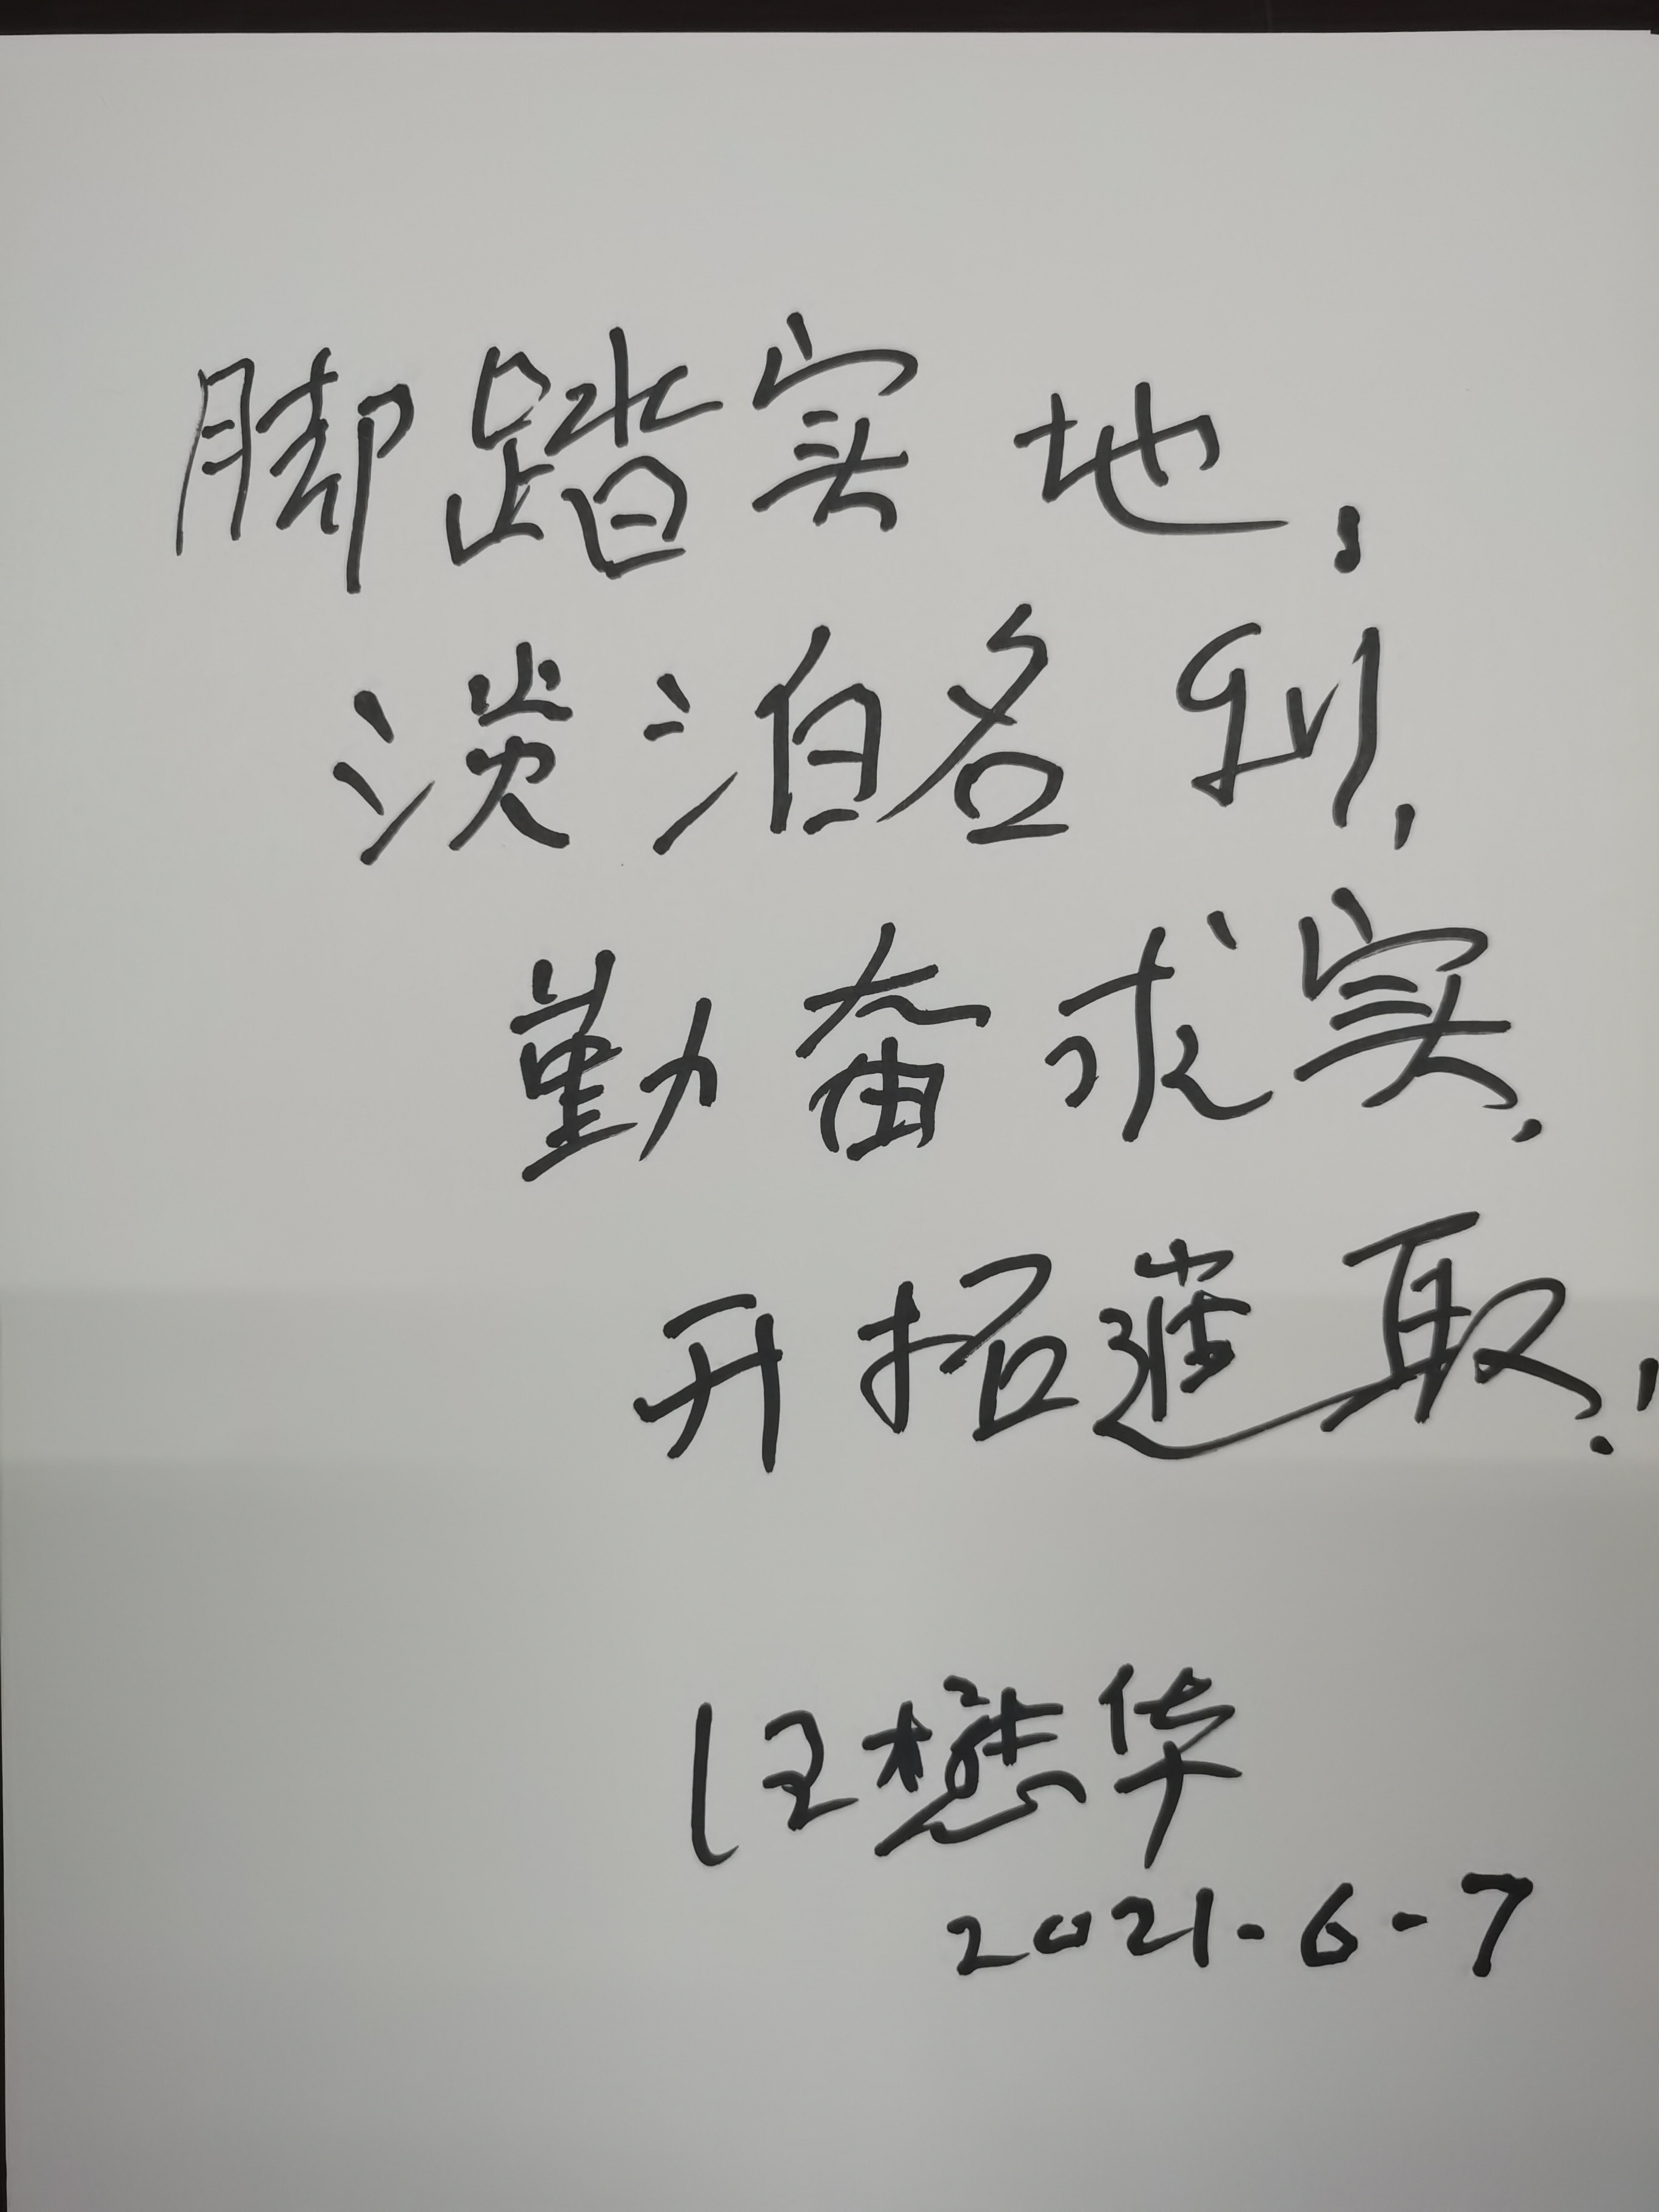 脚踏实地，
淡泊名利，
勤奋求实，
开拓進取！
汪懋华
2021-6-7